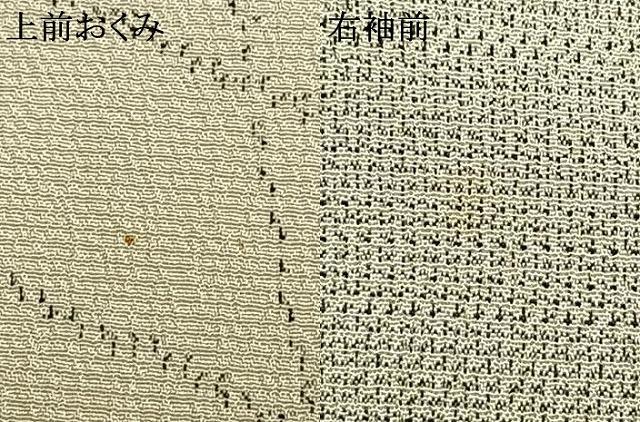 上前おくみ
右袖前